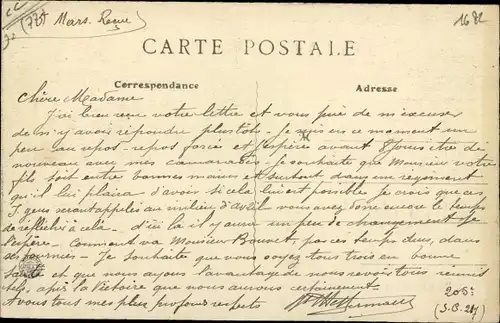 (72e Mars. Reçue)
1682
CARTE POSTALE
Correspondance
Adresse
Chère Madame
J'ai bien reçu votre lettre et vous prie de m'excuser
de n'y avoir répondu plus tôt. Je suis en ce moment un
peu au repos - repos forcé et j'espère avant jours être de
nouveau avec mes camarades. Je souhaite que Monsieur votre
fils soit entre bonnes mains et surtout dans un regiment
qu'il lui plaira d'avoir si cela lui est possible. Je crois que ces
J. gens seront appelés au milieu d'avril nous avez donc encore le temps
de reflechir à cela - d'ici là il y aura un peu de changement je
l'espère. Comment va Monsieur Bouvet, par ces temps durs, dans
ses tournées - Je souhaite que vous soyez tous trois en bonne
santé et que nous ayons l'avantage de nous revoir tous reunis
après la Victoire que nous aurons certainement
A vous tous mes plus profonds respects
205:
(S.P. 217)